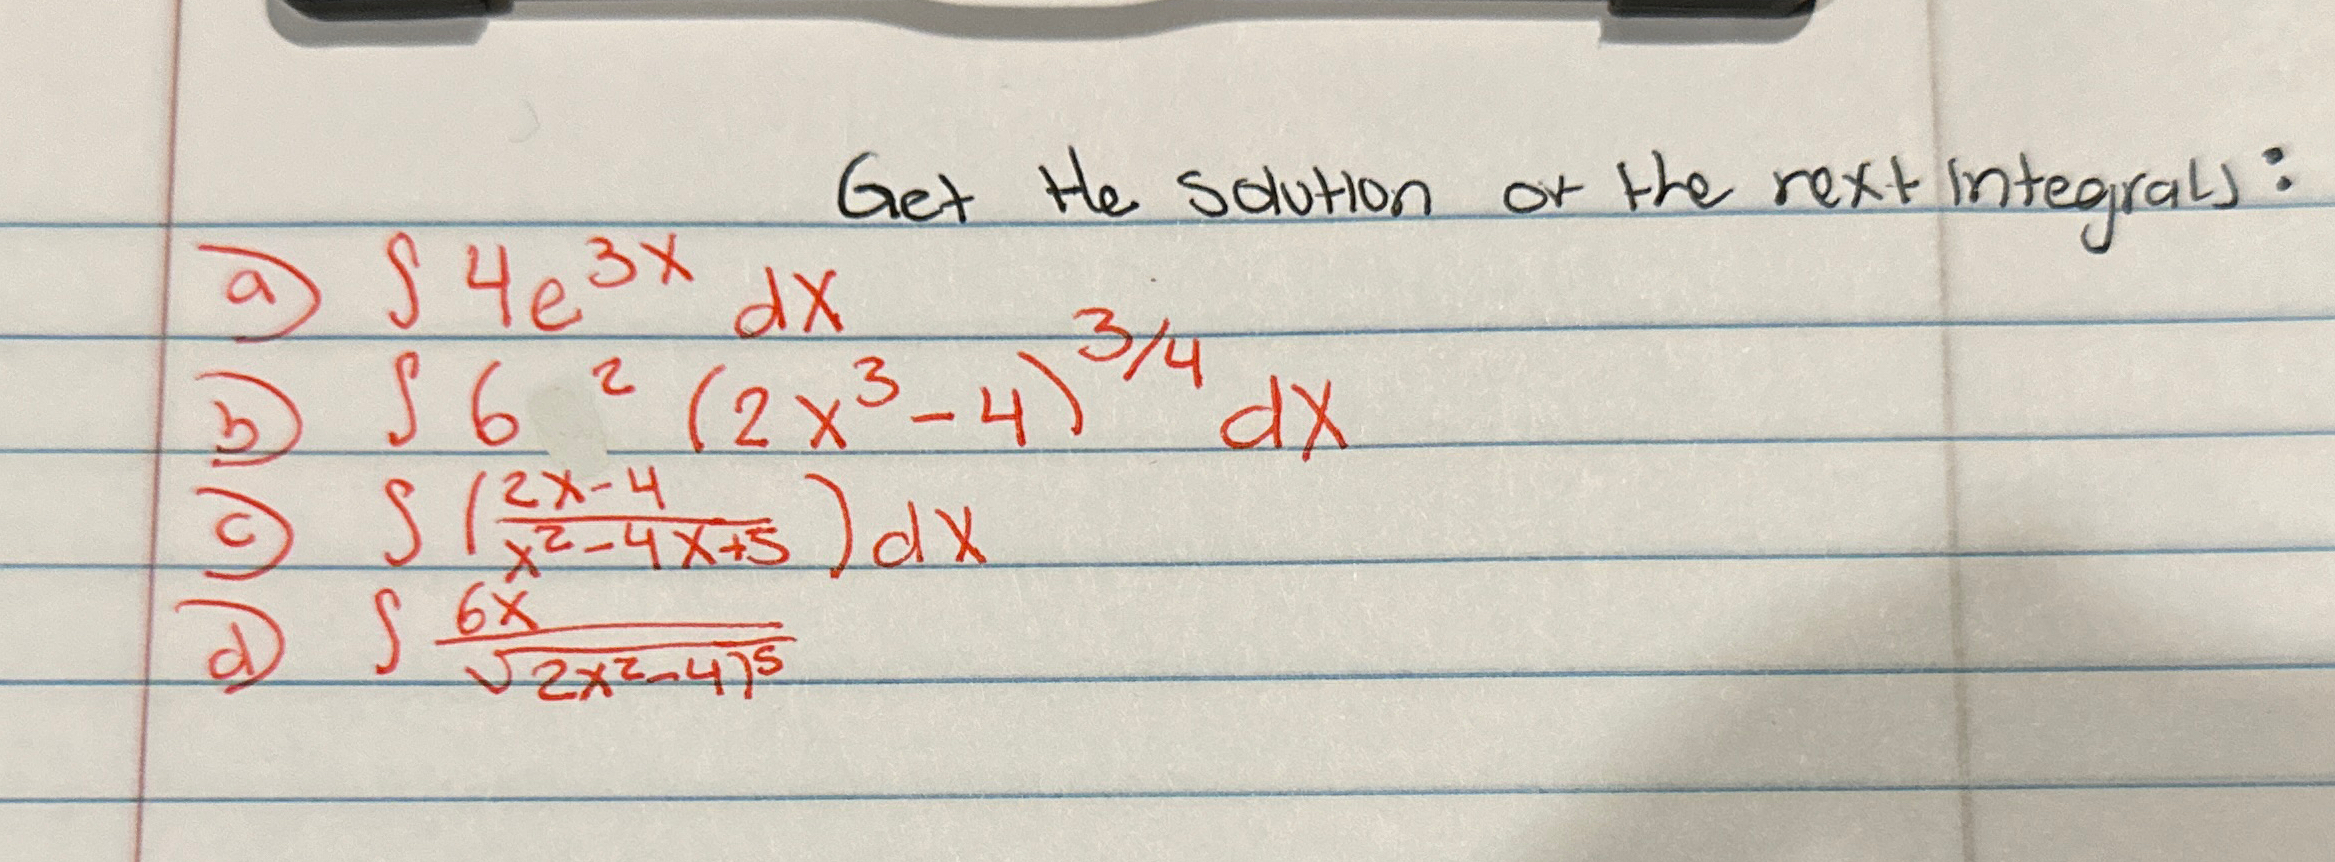 Get the solution of the next integrals:
a) ∫ 4e^3x dx
b) ∫ 6 ² (2x³-4)^3/4 dx
c) ∫ (2x-4 / x²-4x+5) dx
d) ∫ 6x / √2x²-4)⁵